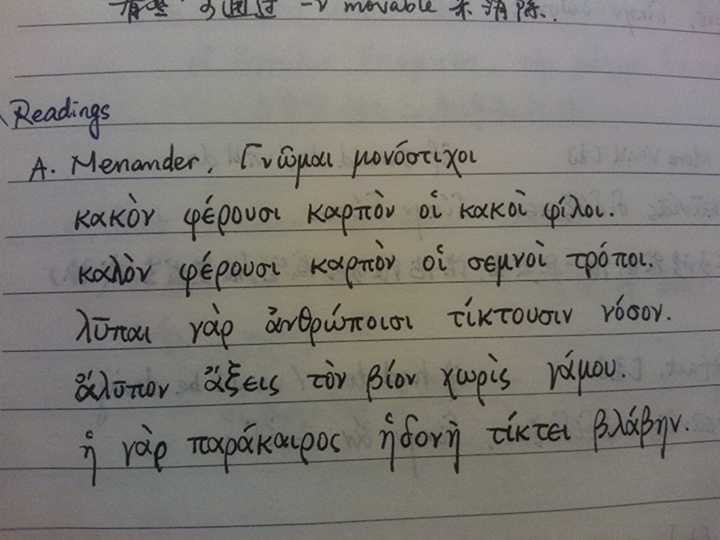 有些 可通过 -ν movable 来消除.
Readings
A. Menander, Γνῶμαι μονόστιχοι
κακὸν φέρουσι καρπὸν οἱ κακοὶ φίλοι.
καλὸν φέρουσι καρπὸν οἱ σεμνοὶ τρόποι.
λῦπαι γὰρ ἀνθρώποισι τίκτουσιν νόσον.
ἄλυπον ἄξεις τὸν βίον χωρὶς γάμου.
ἡ γὰρ παράκαιρος ἡδονὴ τίκτει βλάβην.